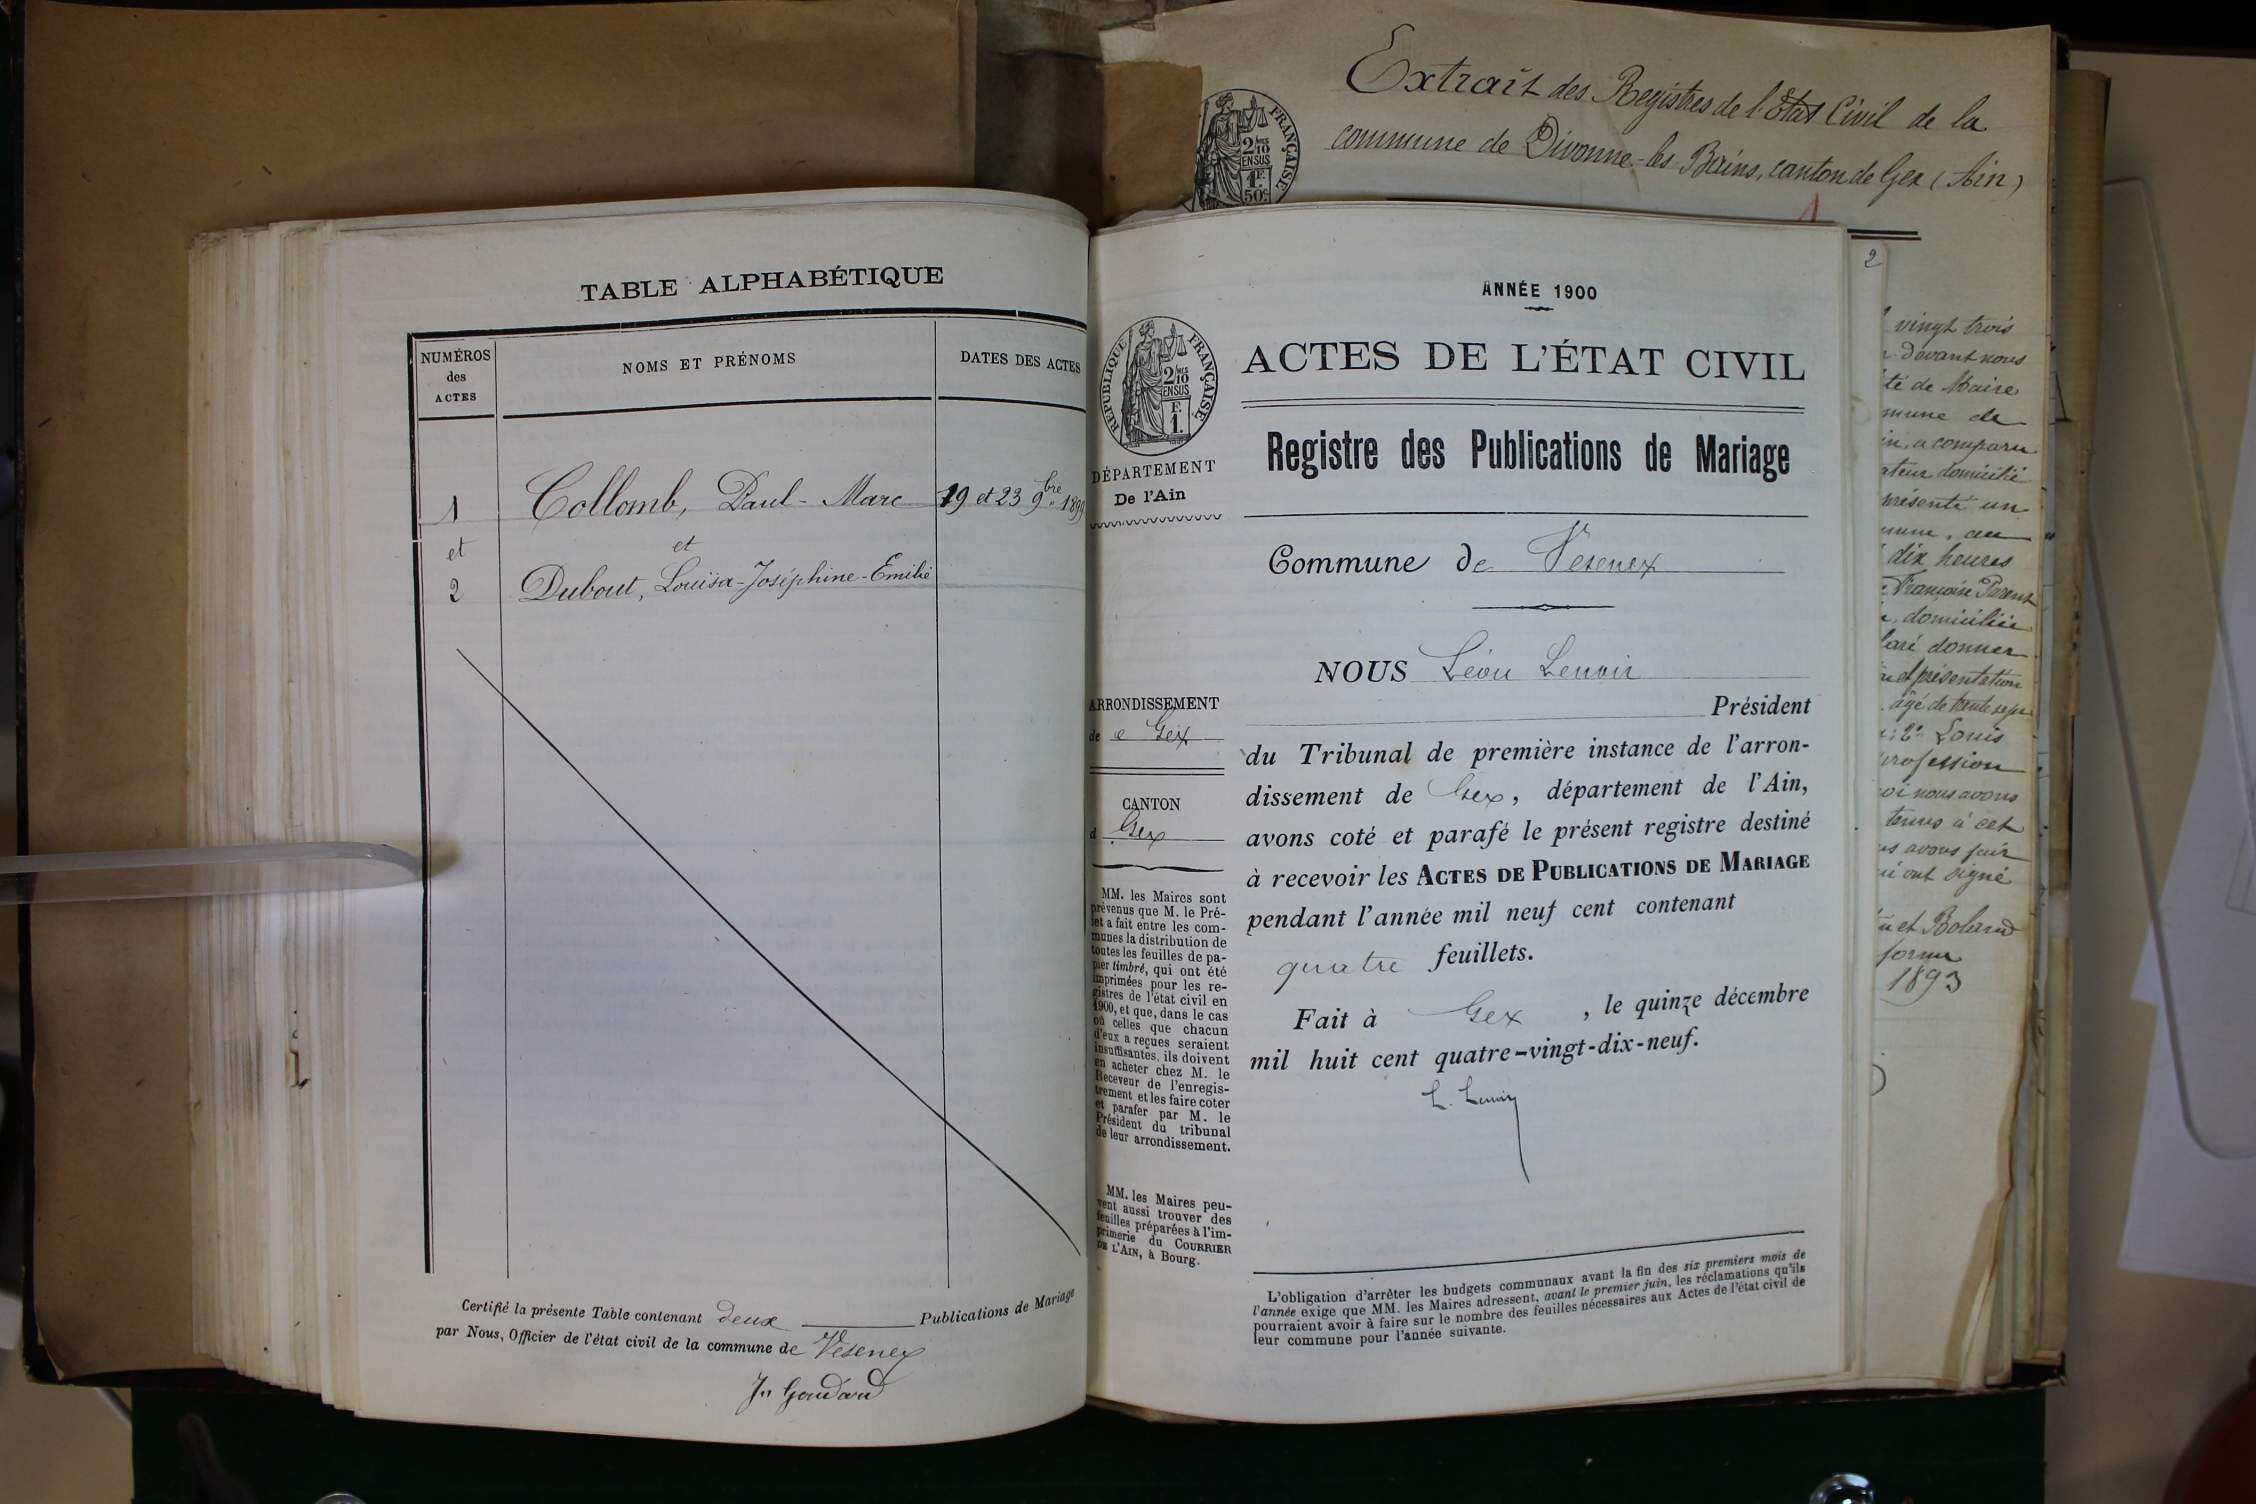 TABLE ALPHABÉTIQUE
NUMÉROS
des
ACTES
NOMS ET PRÉNOMS
DATES DES ACTES
1
Collomb, Paul-Marc
19 et 23 9bre 1899
et
et
2
Dubout, Louïsa-Joséphine-Emilie
Certifié la présente Table contenant deux Publications de Mariage
par Nous, Officier de l'état civil de la commune de Vésenex
Extrait des Registres de l'Etat Civil de la
commune de Divonne-les-Bains, canton de Gex (Ain)
FRANÇAISE
2/10
EN SUS
1F.
50c.
ANNÉE 1900
RÉPUBLIQUE FRANÇAISE
2/10
EN SUS
F.
1.
ACTES DE L'ÉTAT CIVIL
Registre des Publications de Mariage
DÉPARTEMENT
De l'Ain
Commune de Vésenex
NOUS Léon Lenoir
Président
ARRONDISSEMENT
de Gex
du Tribunal de première instance de l'arron-
dissement de Gex, département de l'Ain,
avons coté et parafé le présent registre destiné
à recevoir les ACTES DE PUBLICATIONS DE MARIAGE
pendant l'année mil neuf cent contenant
quatre feuillets.
Fait à Gex, le quinze décembre
mil huit cent quatre-vingt-dix-neuf.
L. Lenoir
CANTON
d Gex
MM. les Maires sont
prévenus que M. le Pré-
fet a fait entre les com-
munes la distribution de
toutes les feuilles de pa-
pier timbré, qui ont été
imprimées pour les re-
gistres de l'état civil en
1900, et que, dans le cas
où celles que chacun
d'eux a reçues seraient
insuffisantes, ils doivent
en acheter chez M. le
Receveur de l'enregis-
trement et les faire coter
et parafer par M. le
Président du tribunal
de leur arrondissement.
MM. les Maires peu-
vent aussi trouver des
feuilles préparées à l'im-
primerie du COURRIER
DE L'AIN, à Bourg.
L'obligation d'arrêter les budgets communaux avant la fin des six premiers mois de
l'année exige que MM. les Maires adressent, avant le premier juin, les réclamations qu'ils
pourraient avoir à faire sur le nombre des feuilles nécessaires aux Actes de l'état civil de
leur commune pour l'année suivante.
2
vingt trois
devant nous
té de Maire
mune de
in, a comparu
ateur domicilié
présenté un
dix heures
Françoise Parent
domiciliée
laré donner
et présentation
âgé de trente sept
2° Louis
profession
oi nous avons
tenus à cet
us avons fait
ui ont signé
et Boland
forme
1893